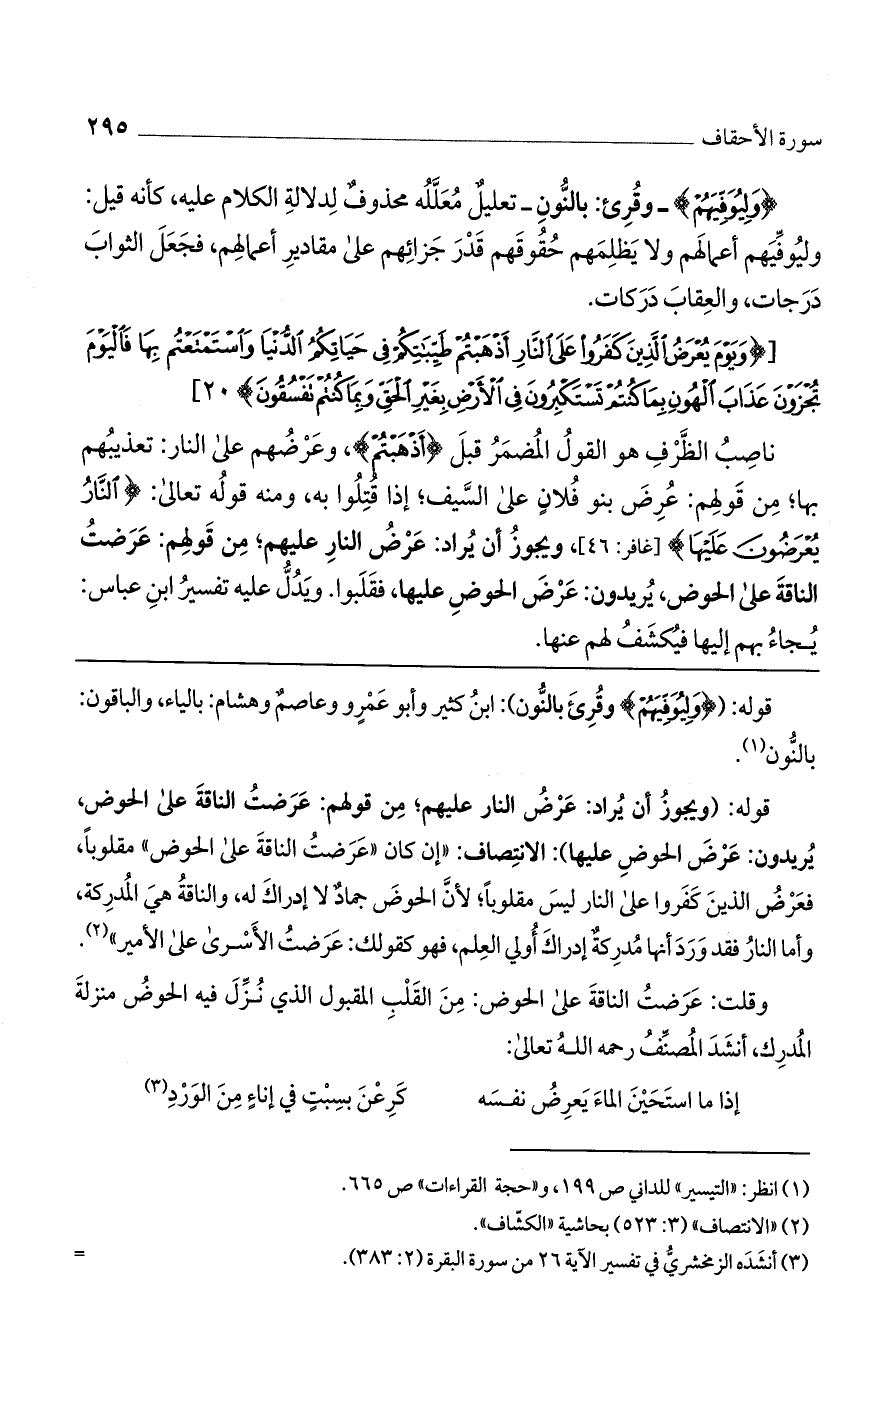 سورة الأحقاف ٢٩٥
﴿وَلِيُوَفِّيَهُمْ﴾ ـ وقُرِئ: بالنُّونِ ـ تعليلٌ مُعَلَّلُه محذوفٌ لِدلالةِ الكلام عليه، كأنه قيل:
وليُوفِّيَهم أعمالَهم ولا يَظلِمَهم حُقُوقَهم قَدْرَ جَزائِهم علىٰ مقاديرِ أعمالِهم، فجَعَلَ الثوابَ
دَرَجات، والعِقابَ دَرَكات.
[﴿وَيَوْمَ يُعْرَضُ الَّذِينَ كَفَرُوا عَلَى النَّارِ أَذْهَبْتُمْ طَيِّبَاتِكُمْ فِي حَيَاتِكُمُ الدُّنْيَا وَاسْتَمْتَعْتُم بِهَا فَالْيَوْمَ
تُجْزَوْنَ عَذَابَ الْهُونِ بِمَا كُنتُمْ تَسْتَكْبِرُونَ فِي الْأَرْضِ بِغَيْرِ الْحَقِّ وَبِمَا كُنتُمْ تَفْسُقُونَ﴾ ٢٠]
ناصِبُ الظَّرْفِ هو القولُ المُضمَرُ قبلَ ﴿أَذْهَبْتُمْ﴾، وعَرْضُهم علىٰ النار: تعذيبُهم
بها؛ مِن قَولِهم: عُرِضَ بنو فُلانٍ علىٰ السَّيف؛ إذا قُتِلُوا به، ومنه قولُه تعالىٰ: ﴿النَّارُ
يُعْرَضُونَ عَلَيْهَا﴾ [غافر: ٤٦]، ويجوزُ أن يُراد: عَرْضُ النارِ عليهم؛ مِن قَولِهم: عَرَضتُ
الناقةَ علىٰ الحوض، يُريدون: عَرْضَ الحوضِ عليها، فقَلَبوا. ويَدُلُّ عليه تفسيرُ ابنِ عباس:
يُـجاءُ بهم إليها فيُكشَفُ لهم عنها.
قوله: (﴿وَلِيُوَفِّيَهُمْ﴾ وقُرِئَ بالنُّون): ابنُ كثير وأبو عَمْرٍو وعاصمٌ وهشام: بالياء، والباقون:
بالنُّون(١).
قوله: (ويجوزُ أن يُراد: عَرْضُ النار عليهم؛ مِن قولهم: عَرَضتُ الناقةَ علىٰ الحوض،
يُريدون: عَرْضَ الحوضِ عليها): الانتِصاف: «إن كان «عَرَضتُ الناقةَ علىٰ الحوض» مقلوباً،
فعَرْضُ الذينَ كَفَروا علىٰ النار ليسَ مقلوباً؛ لأنَّ الحوضَ جمادٌ لا إدراكَ له، والناقةُ هيَ المُدرِكة،
وأما النارُ فقد وَرَدَ أنها مُدرِكةٌ إدراكَ أُولي العِلم، فهو كقولك: عَرَضتُ الأَسْرىٰ علىٰ الأمير»(٢).
وقلت: عَرَضتُ الناقةَ علىٰ الحوض: مِنَ القَلْبِ المقبول الذي نُـزِّلَ فيه الحوضُ منزلةَ
المُدرِك، أنشَدَ المُصنِّفُ رحمه اللهُ تعالىٰ:
إذا ما استَحَيْنَ الماءَ يَعرِضُ نفسَه كَرِعْنَ بسِبْتٍ في إناءٍ مِنَ الوَرْدِ(٣)
(١) انظر: «التيسير» للداني ص ١٩٩، و«حجة القراءات» ص ٦٦٥.
(٢) «الانتصاف» (٣: ٥٢٣) بحاشية «الكشّاف».
(٣) أنشَدَه الزمخشريُّ في تفسير الآية ٢٦ من سورة البقرة (٢: ٣٨٣). =